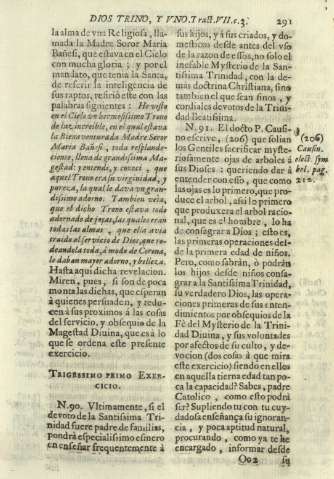 DIOS TRINO, Y VNO. Tract. VII. c. 3. 291
la alma de vna Religiosa, lla-
mada la Madre Soror Maria
Bañesi, que estava en el Cielo
con mucha gloria; y por el
mandato, que tenia la Santa,
de referir la inteligencia de
sus raptos, refirió este con las
palabras siguientes: He visto
en el Cielo vn hermosissimo Trono
de luz, increible, en el qual estava
la Bienaventurada Madre Soror
Maria Bañesi, toda resplande-
ciente, llena de grandissima Ma-
gestad: y entendi, y conoci, que
aquel Trono era su virginidad, y
pureza, la qual le dava vn gran-
dissimo adorno. Tambien veia,
que el dicho Trono estava todo
adornado de joyas, las quales eran
todas las almas, que ella avia
traido al servicio de Dios, que ro-
deandola toda, à modo de Corona,
le daban mayor adorno, y belleza.
Hasta aqui dicha revelacion.
Miren, pues, si son de poca
monta las dichas, que esperan
à quienes persuaden, y redu-
cen à sus proximos à las cosas
del servicio, y obsequio de la
Magestad Diuina, que es à lo
que se ordena este presente
exercicio.
TRIGESSIMO PRIMO EXER-
CICIO.
N. 90. Vltimamente, si el
devoto de la Santissima Tri-
nidad fuere padre de familias,
pondrà especialissimo esmero
en enseñar frequentemente à
sus hijos, y à sus criados, y do-
mesticos desde antes del vso
de la razon de essos, no solo el
inefable Mysterio de la San-
tissima Trinidad, con la de-
mas doctrina Christiana, sino
tambien el que sean finos, y
cordiales devotos de la Trinidad
Beatissima.
N. 91. El docto P. Causi-
no escrive, (206) que solian
los Gentiles sacrificar myste-
riosamente ojas de arboles à
sus Diosis: queriendo dar à
entender con esso, que como
las ojas es lo primero, que pro-
duce el arbol, assi lo primero
que produxera el arbol racio-
nal, que es el hombre, lo ha
de consagrar à Dios; esto es,
las primeras operaciones des-
de la primera edad de niños.
Pero, como sabràn, ò podràn
los hijos desde niños consa-
grar à la Santissima Trinidad,
su verdadero Dios, las opera-
ciones primeras de sus enten-
dimientos por obsequios de la
Fè del Mysterio de la Trini-
dad Diuina, y sus voluntades
por afectos de su culto, y de-
vocion (dos cosas à que mira
este exercicio) siendo en ellos
en aquella tierna edad tan po-
ca la capacidad? Sabes, padre
Catolico, como esto podrà
ser? Supliendo tu con tu cuy-
dadosa enseñança su ignoran-
cia, y poca aptitud natural,
procurando, como ya te he
encargado, informar desde
Oo2 su
(206)
Causin.
elect. sym
bol. pag.
212.